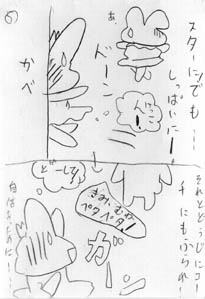 ⑥
スターにでも…
しっぱいにー
あ、
ドーン
かべ
それとどうじにコー
チにもふられー
きみにむかぬ
ペタペタ!
どーして
ガーン